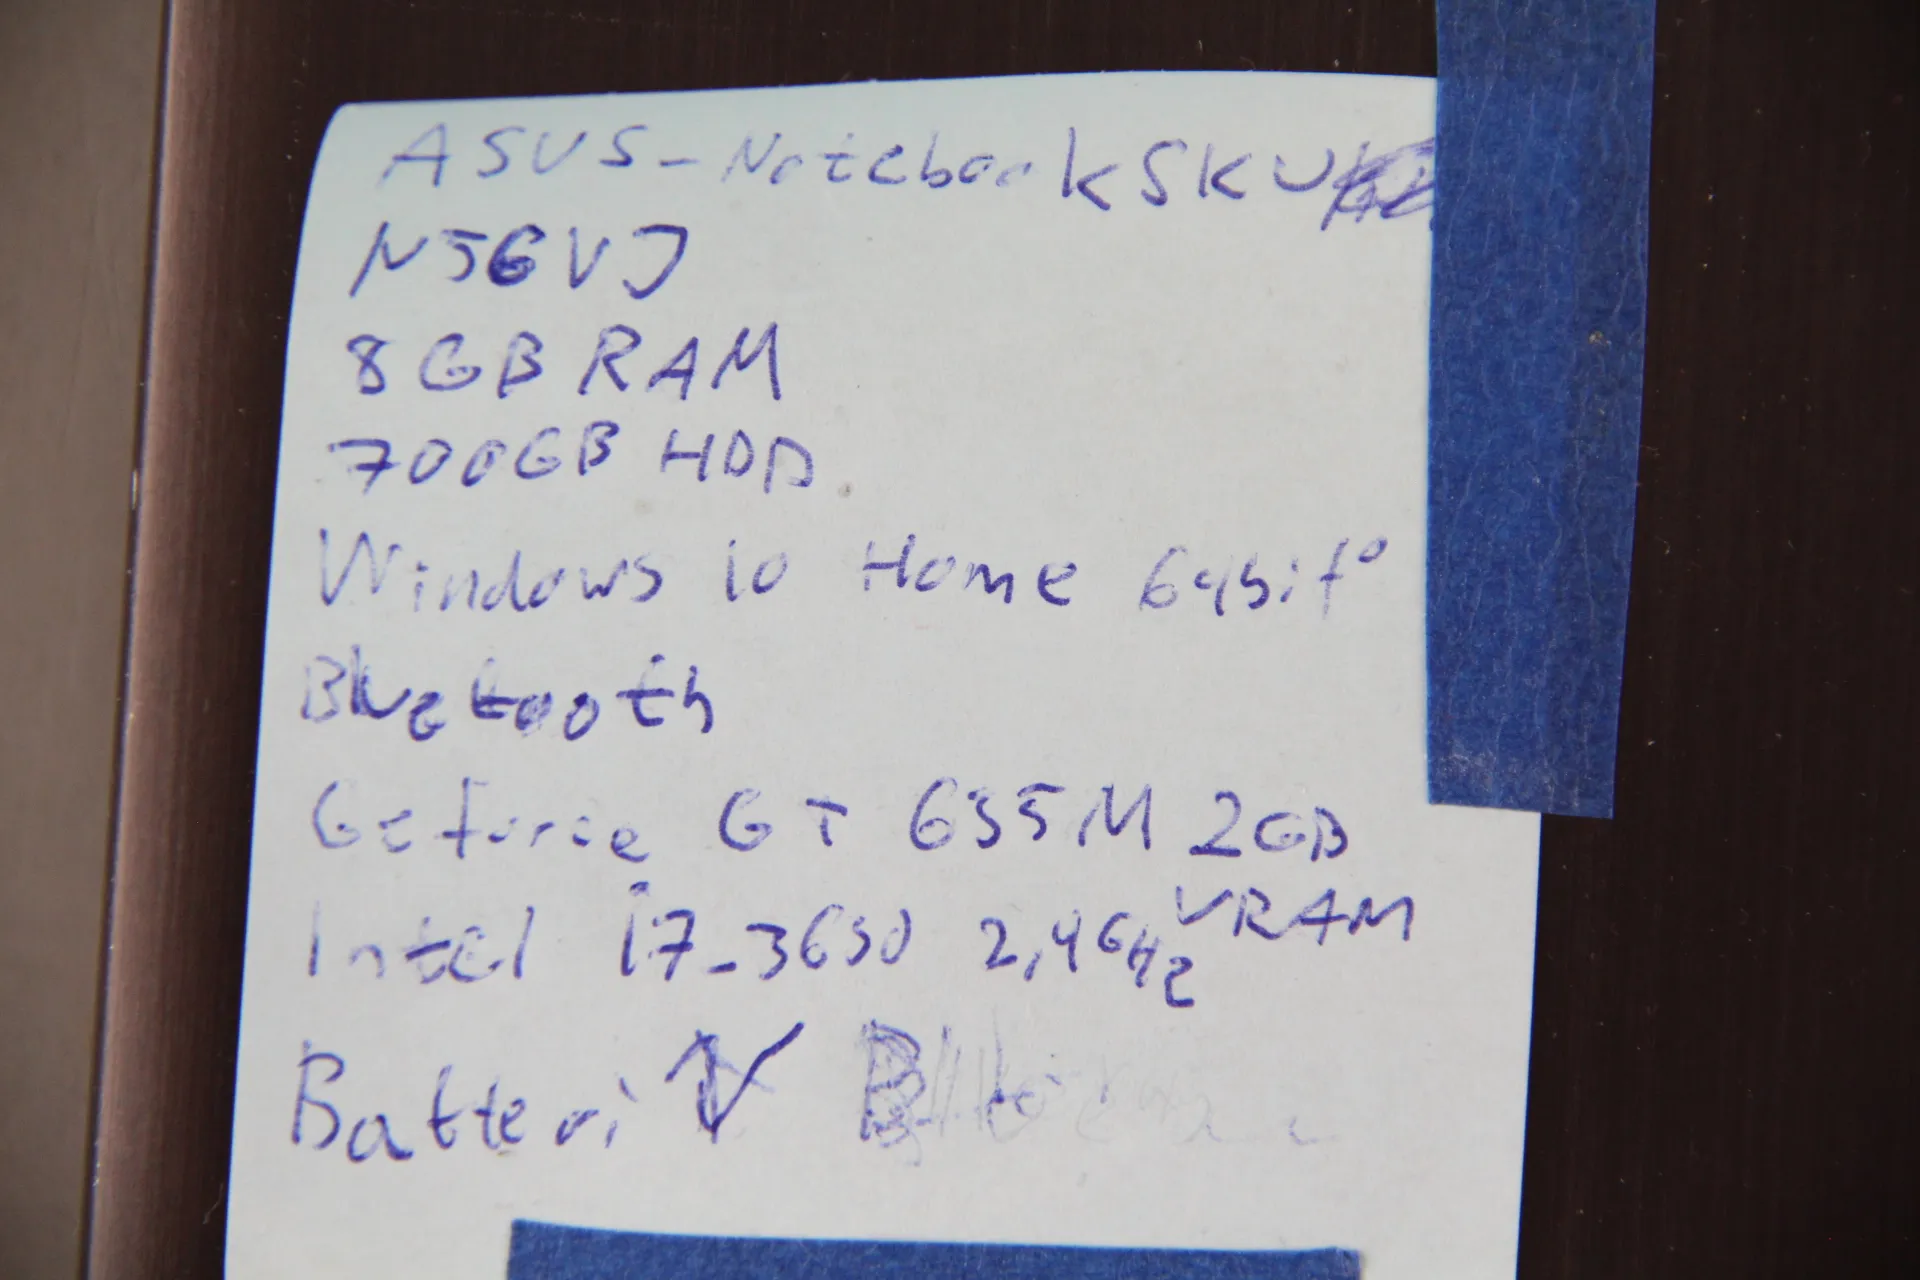 ASUS-Notebook SKU
N56VJ
8GB RAM
700GB HDD
Windows 10 Home 64bit
Bluetooth
Geforce GT 635M 2GB
VRAM
Intel i7-3630 2,4GHz
Batteri